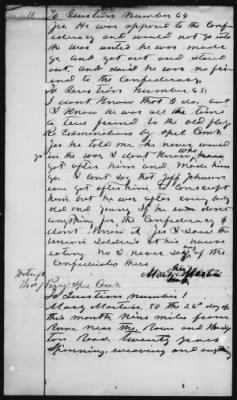 To Question Number 44
Yes He was opposed to the Confe
deracy and would not go into
the War until he was made
go, and got out and staid
out, and said he was no fri
end to the Confederacy.
To Question Number 43:
I don't know that I do, but
I know he was all the time
a true friend to the old flag
Re Examination by Spcl Com'r.
Yes he told me he never would
go in the war, I don't know who
got after him and made him
go I can't say that Jeff Johnson
ever got after him to Conscript
him, but he was after every body
old and young, if he ever done
anything for the Confederacy I
don't know it. Yes I saw the
Union Soldiers at his house
eating. No I never saw any of the
Confederates there
Mary Martin
his mark
By Spcl Com'r.
To Question number 1
Mary Martin, 50 the 26th day of
this month Nine miles from
Rome near the Rome and
ton Road, twenty years
Spinning, weaving and anything